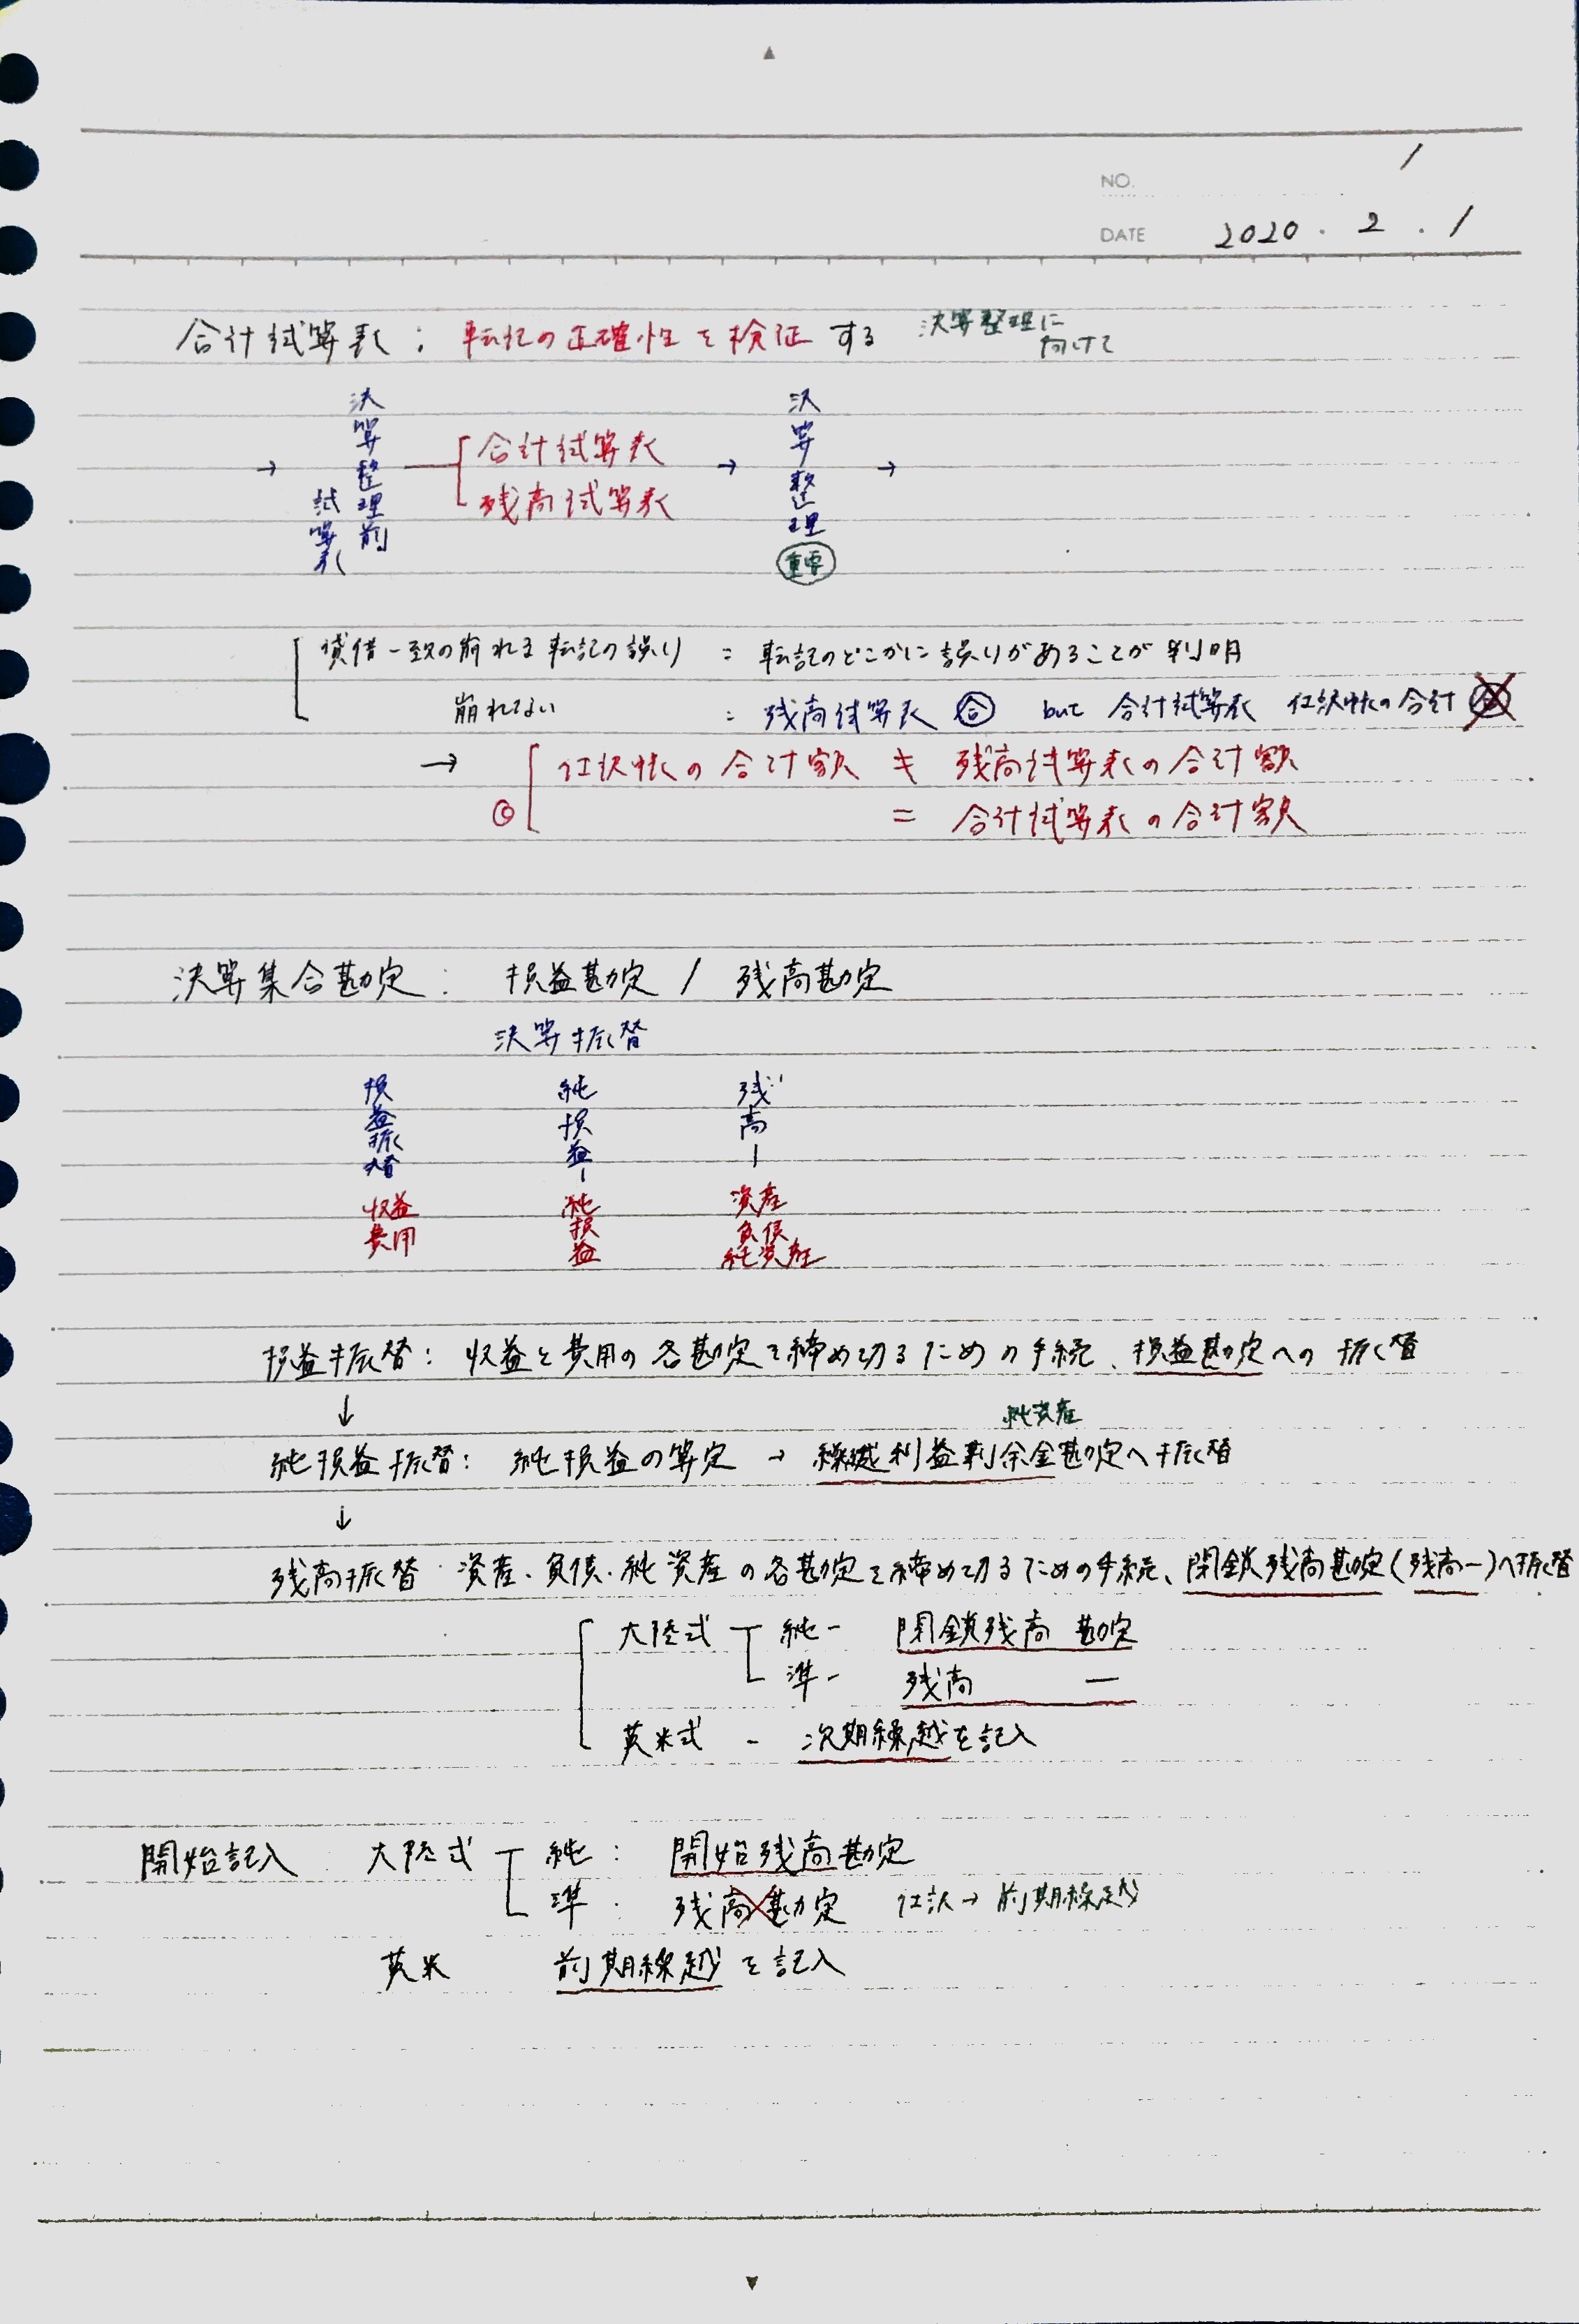 NO. 1
DATE 2020 . 2 . 1
合計試算表 : 転記の正確性を検証する 決算整理に
向けて
→ 決算整理前試算表 合計試算表 → 決算整理 →
残高試算表
重要
貸借一致の崩れる転記の誤り : 転記のどこかに誤りがあることが判明
崩れない : 残高試算表 合 but 合計試算表 仕訳帳の合計
→ 仕訳帳の合計額 ≠ 残高試算表の合計額
◎ = 合計試算表の合計額
決算集合勘定 : 損益勘定 / 残高勘定
決算振替
損益振替 純損益ー 残高ー
収益 純損益 資産
費用 負債
純資産
損益振替 : 収益と費用の各勘定を締め切るための手続、損益勘定への振替
↓ 純資産
純損益振替 : 純損益の算定 → 繰越利益剰余金勘定へ振替
↓
残高振替 資産、負債、純資産の各勘定を締め切るための手続、閉鎖残高勘定(残高ー)へ振替
大陸式 純ー 閉鎖残高勘定
準ー 残高 ー
英米式 - 次期繰越を記入
開始記入 : 大陸式 純 : 開始残高勘定
準 : 残高勘定 仕訳→前期繰越
英米 前期繰越を記入